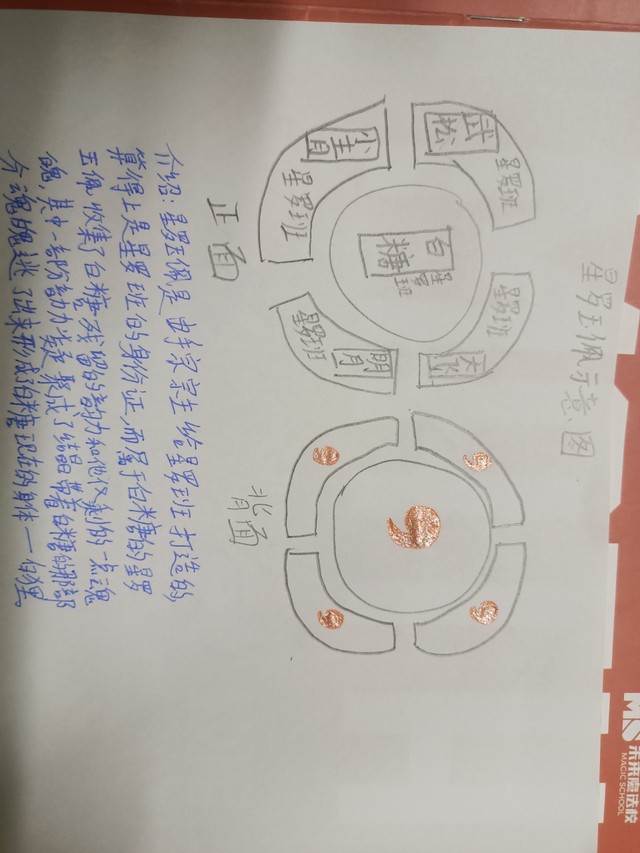 星罗玉佩示意图
武松
星罗班
小青
星罗班
白糖
星罗班
星罗班
大飞
明月
星罗班
正面
背面
介绍:星罗玉佩是由手宗宗主给星罗班打造的
算得上是星罗班的身份证,而属于白糖的星罗
玉佩收集了白糖残留的韵力和他仅剩的一点魂
魄,其中一部份韵力 聚成了结晶 带着白糖的那部
分魂魄逃了出来形成了白糖现在的身体一白狸。
未来魔法校
MAGIC SCHOOL